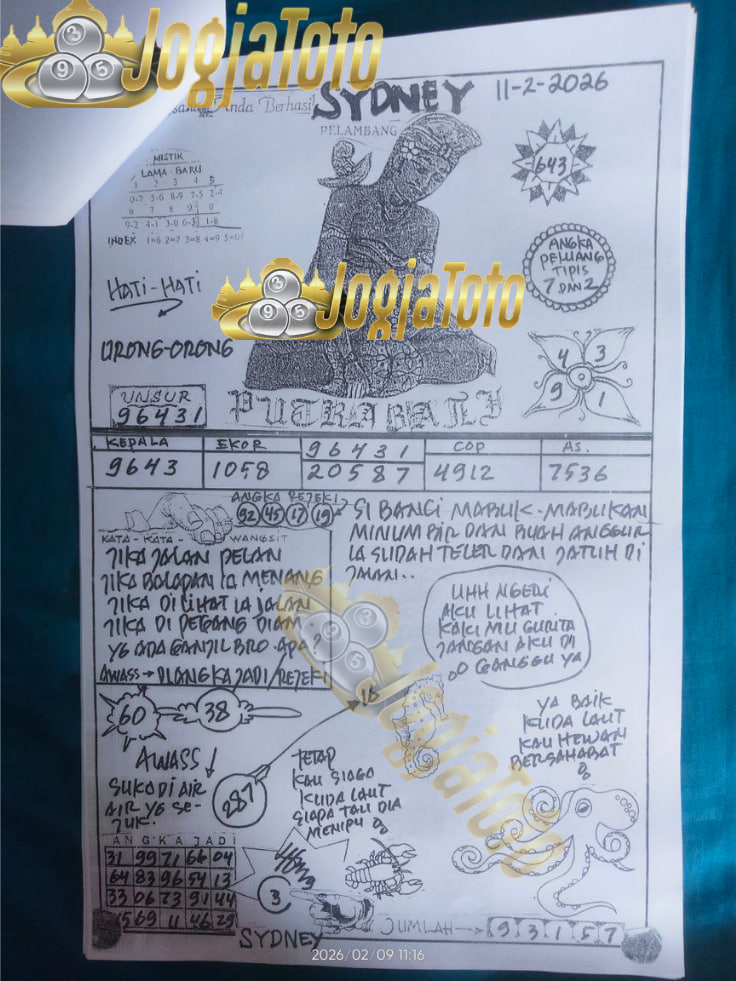 JogjaToto
Anda Berhasil
SYDNEY 11-2-2026
PELAMBANG
MISTIK
LAMA-BARU
1 2 3 4 5
0-7 5-6 8-9 7-5 2-4
6 7 8 9 0
9-2 4-1 3-0 6-3 1-8
INDEX 1=6 2=7 3=8 4=9 5=0
643
ANGKA
PELUANG
TIPIS
7 DAN 2
HATI-HATI
JogjaToto
ORONG-ORONG
4 3
9 1
UNSUR
96431
PUTRA BALI
KEPALA EKOR 96431 COP AS.
9643 1058 20587 4912 7536
ANGKA REJEKI
92 45 17 19
KATA - KATA - WANGSIT
JIKA JALAN PELAN
JIKA BALAPAN IA MENANG
JIKA DI LIHAT IA JALAN
JIKA DI PEGANG DIAM
YG ADA GANJIL BRO. APA?
AWASS → DI ANGKA JADI/REJEKI
SI BANCI MABUK-MABUKAN
MINUM BIR DAN BUAH ANGGUR
IA SUDAH TELER DAN JATUH DI
JALAN..
UHH NGERI
AKU LIHAT
KAKI MU GURITA
JANGAN AKU DI
GANGGU YA
60 38
18
JogjaToto
YA BAIK
KUDA LAUT
KAU HEWAN
BERSAHABAT
AWASS
SUKA DI AIR
AIR YG SE-
JUK.
287
TETAP
KAU SIAGA
KUDA LAUT
SIAPA TAU DIA
MENIPU
ANGKA JADI
31 99 71 66 04
64 83 96 54 13
33 06 73 91 44
15 69 11 46 29
3
SYDNEY
JUMLAH → 9 3 1 5 7
2026/02/09 11:16